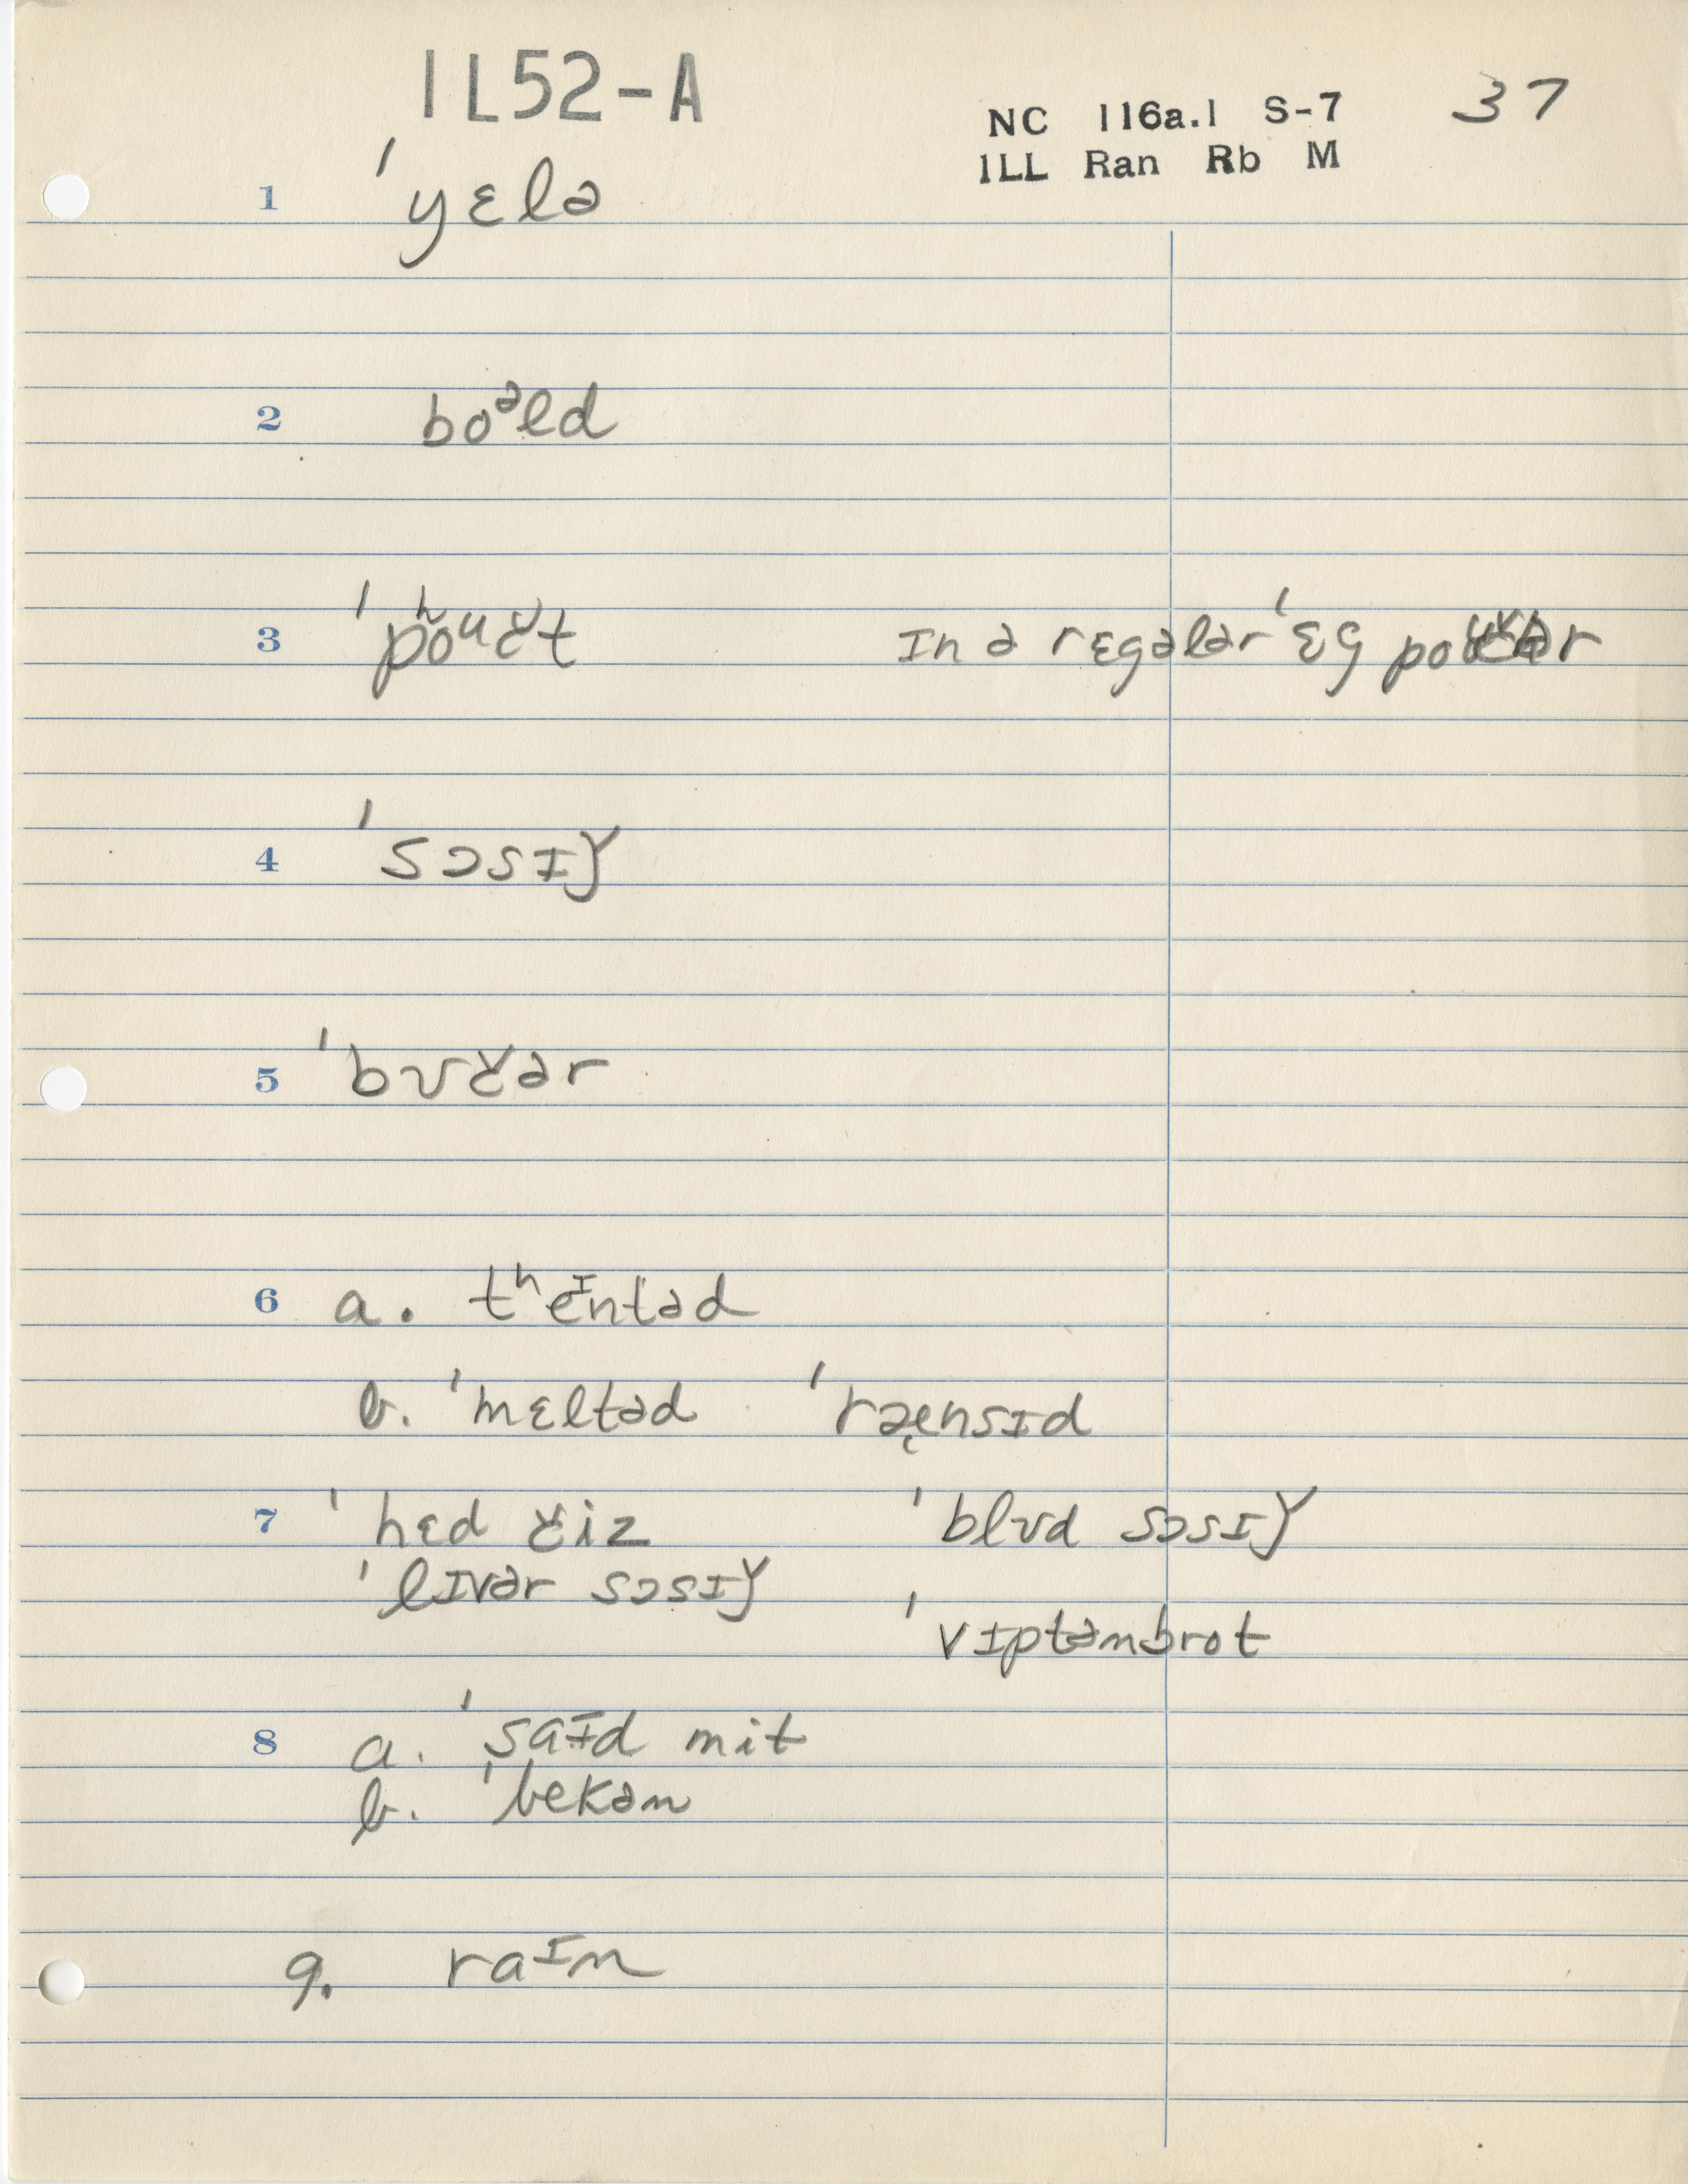 1L52-A
NC 116a.1 S-7 37
ILL Ran Rb M
1 ˈyɛlə
2 boᵊld
3 ˈpʰoᵘčt ɪn ə rɛgələr ˈɛg
4 ˈsɔsɪǰ
5 ˈbʊčər
6 a. tʰeᶦntəd
b. ˈmɛltəd ˈræ̨nsɪd
7 ˈhɛd čiz ˈblʊd sɔsɪǰ
ˈlɪvər sɔsɪǰ
ˈvɪptəmbrot
8 a. ˈsaᶦd mit
b. ˈbekən
9. raᶦm